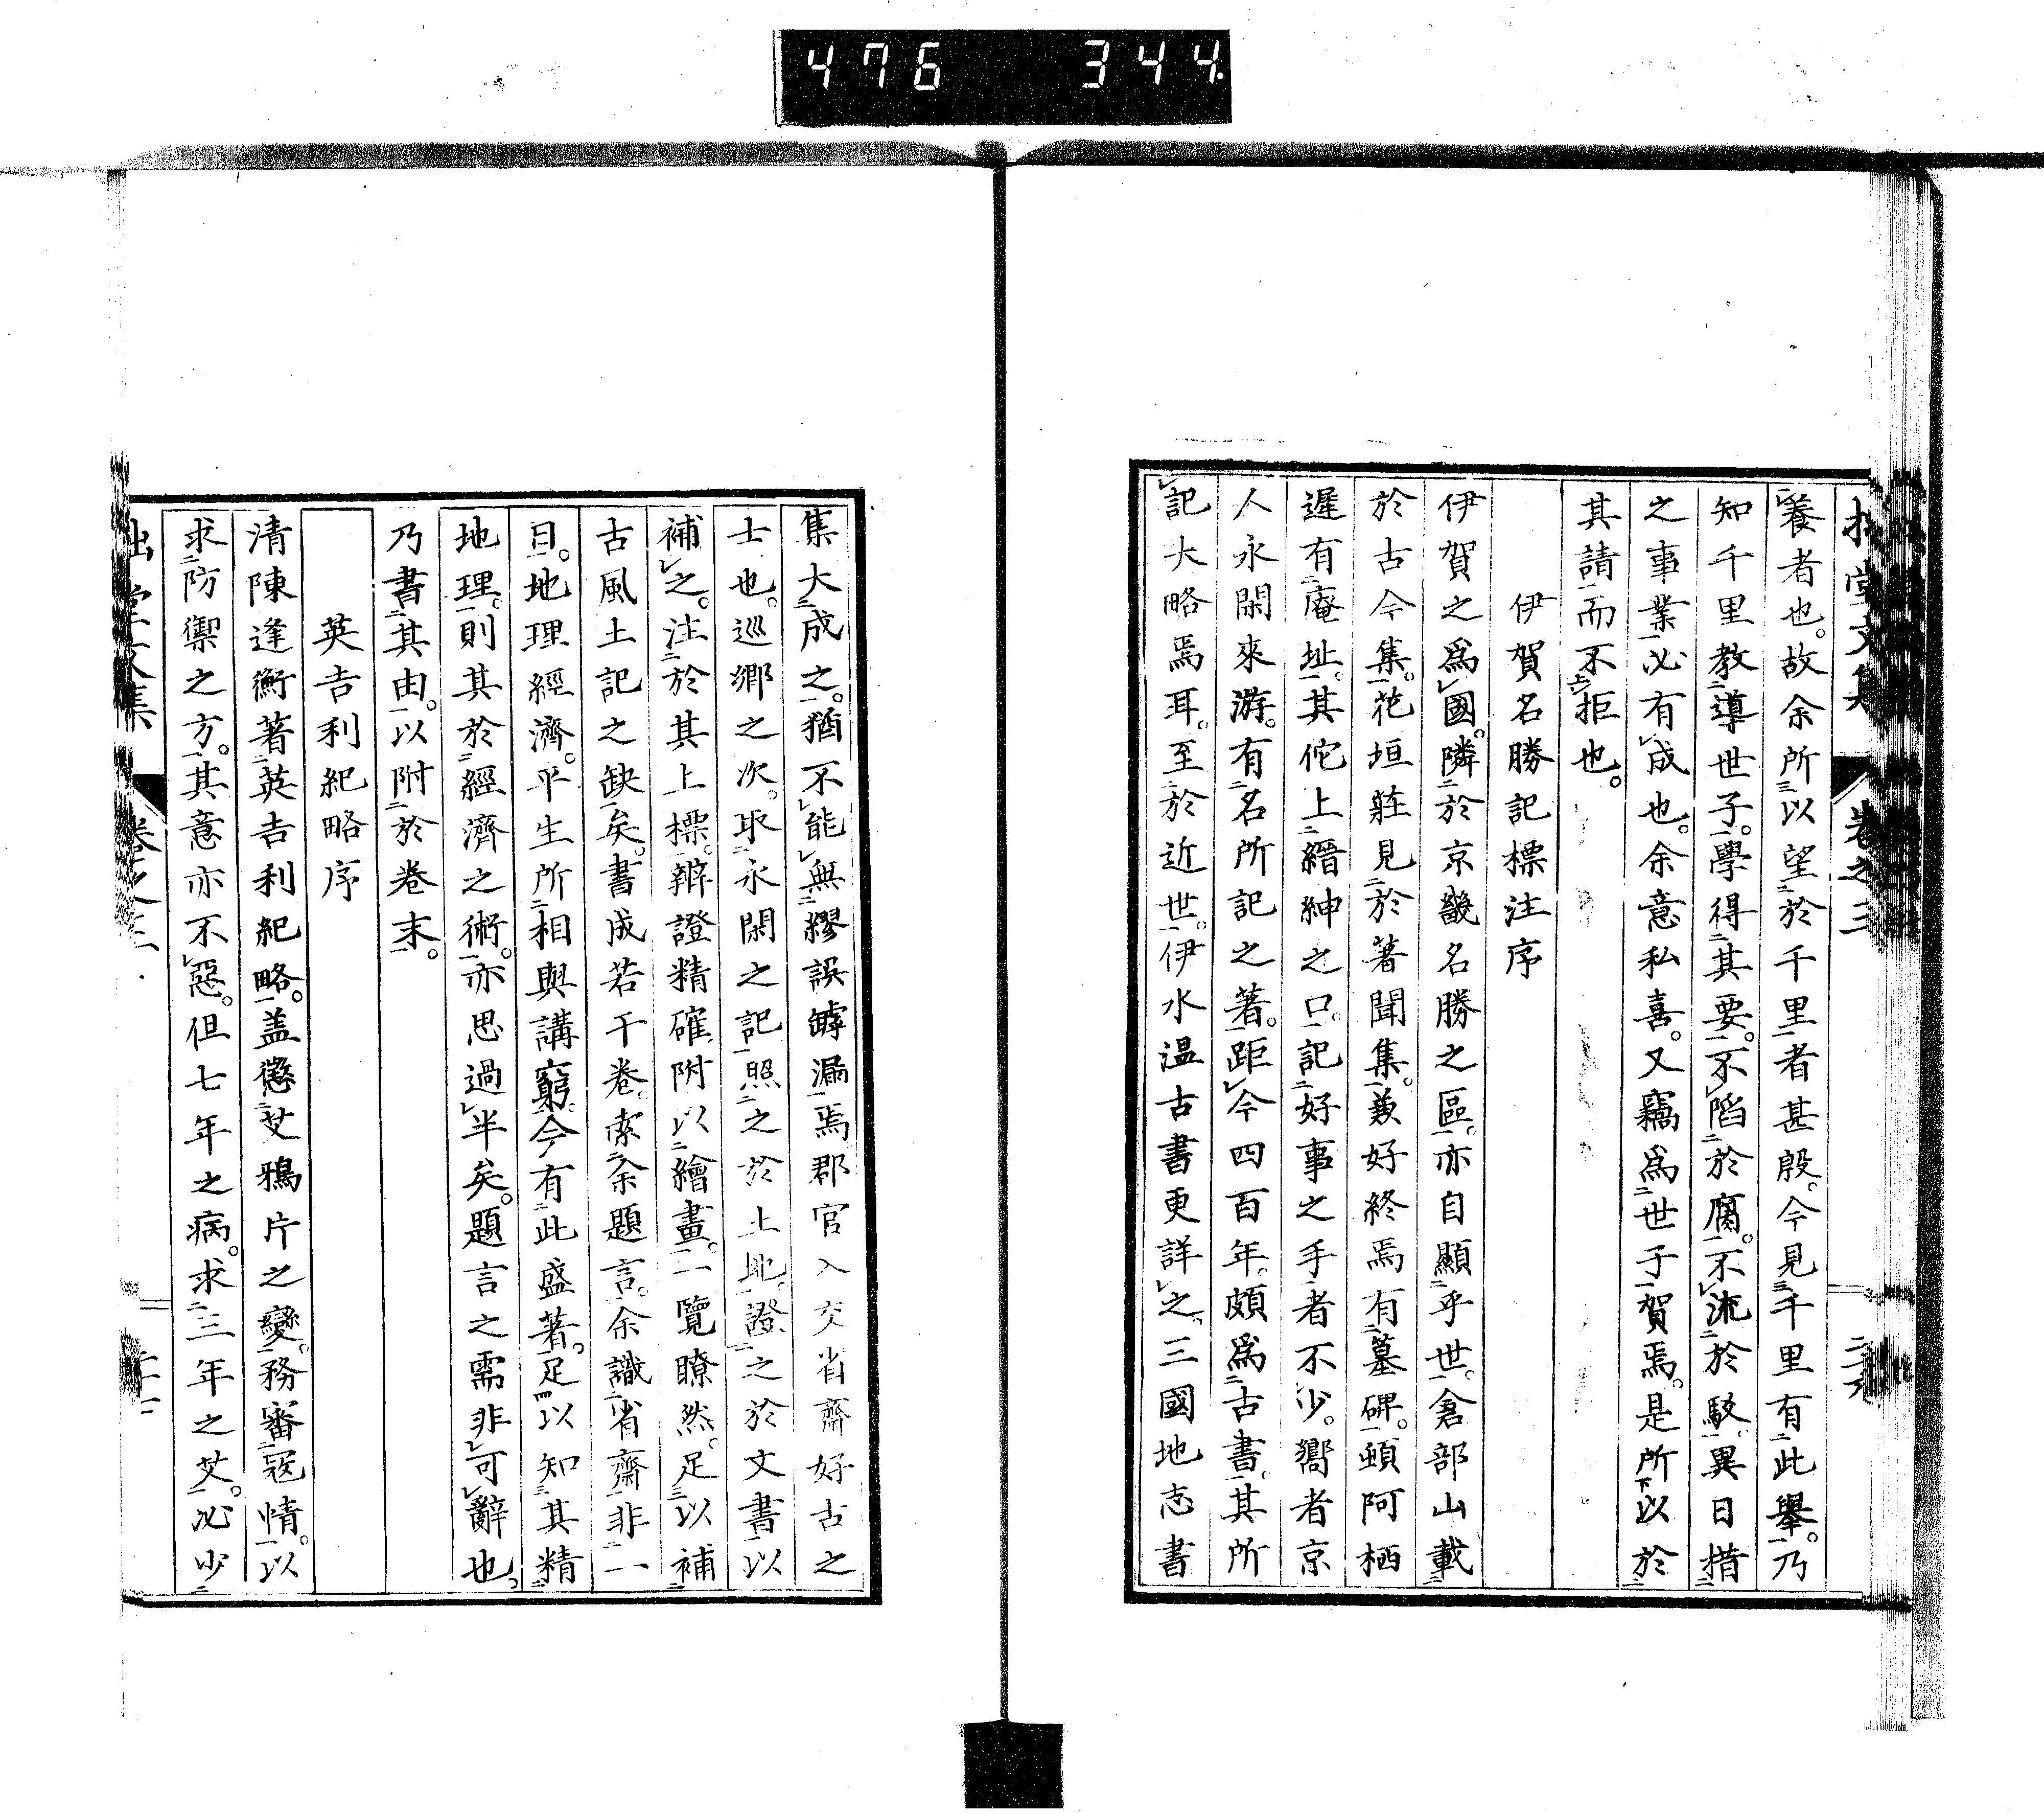 476 344.
養者也。故余所以望於千里者甚殷。今見千里有此舉。乃
知千里教導世子。學得其要。不陷於腐。不流於駁。異日措
之事業。必有成也。余意私喜。又竊爲世子賀焉。是所以於
其請而不拒也。
伊賀名勝記標注序
伊賀之爲國。隣於京畿名勝之區。亦自顯乎世。倉部山載
於古今集。花垣莊見於著聞集。兼好終焉有墓碑。頓阿栖
遲有庵址。其佗上縉紳之口。記好事之手者不少。嚮者京
人永閑來游。有名所記之著。距今四百年。頗爲古書。其所
記大略焉耳。至於近世。伊水溫古書更詳之。三國地志書
集大成之。猶不能無繆誤罅漏焉郡官入交省齋好古之
士也。巡鄉之次。取永閑之記。照之於土地。證之於文書。以
補之。注於其上標。辨證精確附以繪畫。一覽瞭然。足以補
古風土記之缺矣。書成若干卷。索余題言。余識省齋。非一
日。地理經濟。平生所相與講窮。今有此盛著。足以知其精
地理。則其於經濟之術。亦思過半矣。題言之需非可辭也。
乃書其由。以附於卷末。
英吉利紀略序
清陳逢衡著英吉利紀略。蓋懲艾鴉片之變。務審寇情。以
求防禦之方。其意亦不惡。但七年之病。求三年之艾。必少
堂文集 卷之三